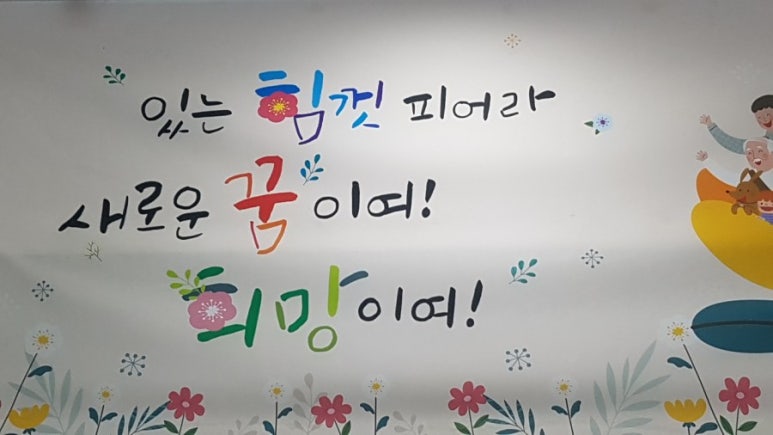 있는 힘껏 피어라
새로운 꿈이여!
희망이여!